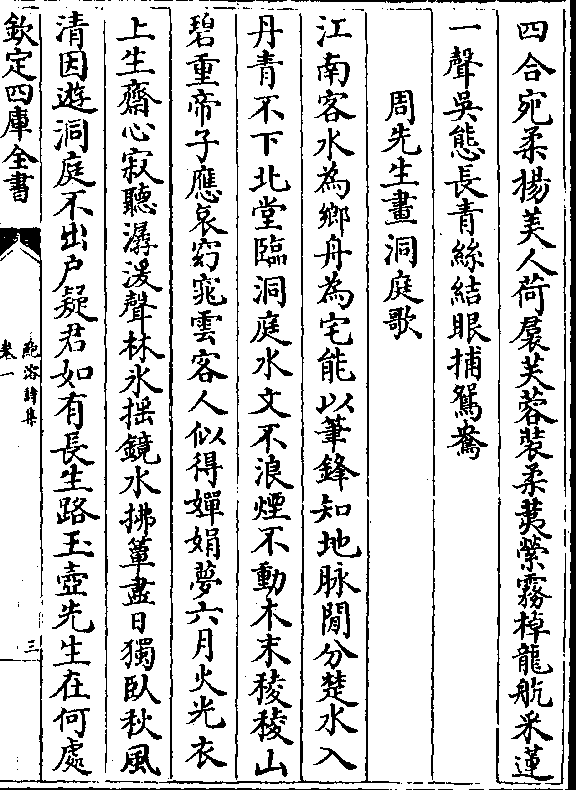 四合宛柔揚美人荷裠芙蓉裝柔荑縈霧棹龍航采蓮
一聲吳態長青絲結眼捕鴛鴦
周先生畫洞庭歌
江南客水為鄉舟為宅能以筆鋒知地脉閒分楚水入
丹青不下北堂臨洞庭水文不浪煙不動木末稜稜山
碧重帝子應哀窈窕雲客人似得嬋娟夢六月火光衣
上生齋心寂聽潺湲聲林氷揺鏡水拂簟盡日獨臥秋風
清因遊洞庭不出户疑君如有長生路玉壺先生在何處
欽定四庫全書
鮑溶詩集
卷一
三